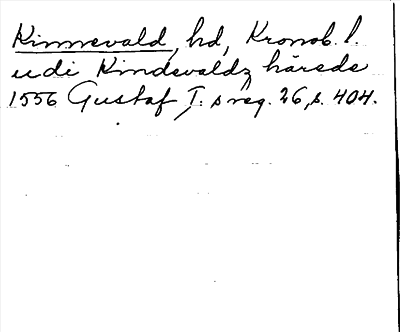 Kinnevald, hd, Kronob. l.
udi Kindevaldz härede
1556 Gustaf I:s reg. 26, s. 404.